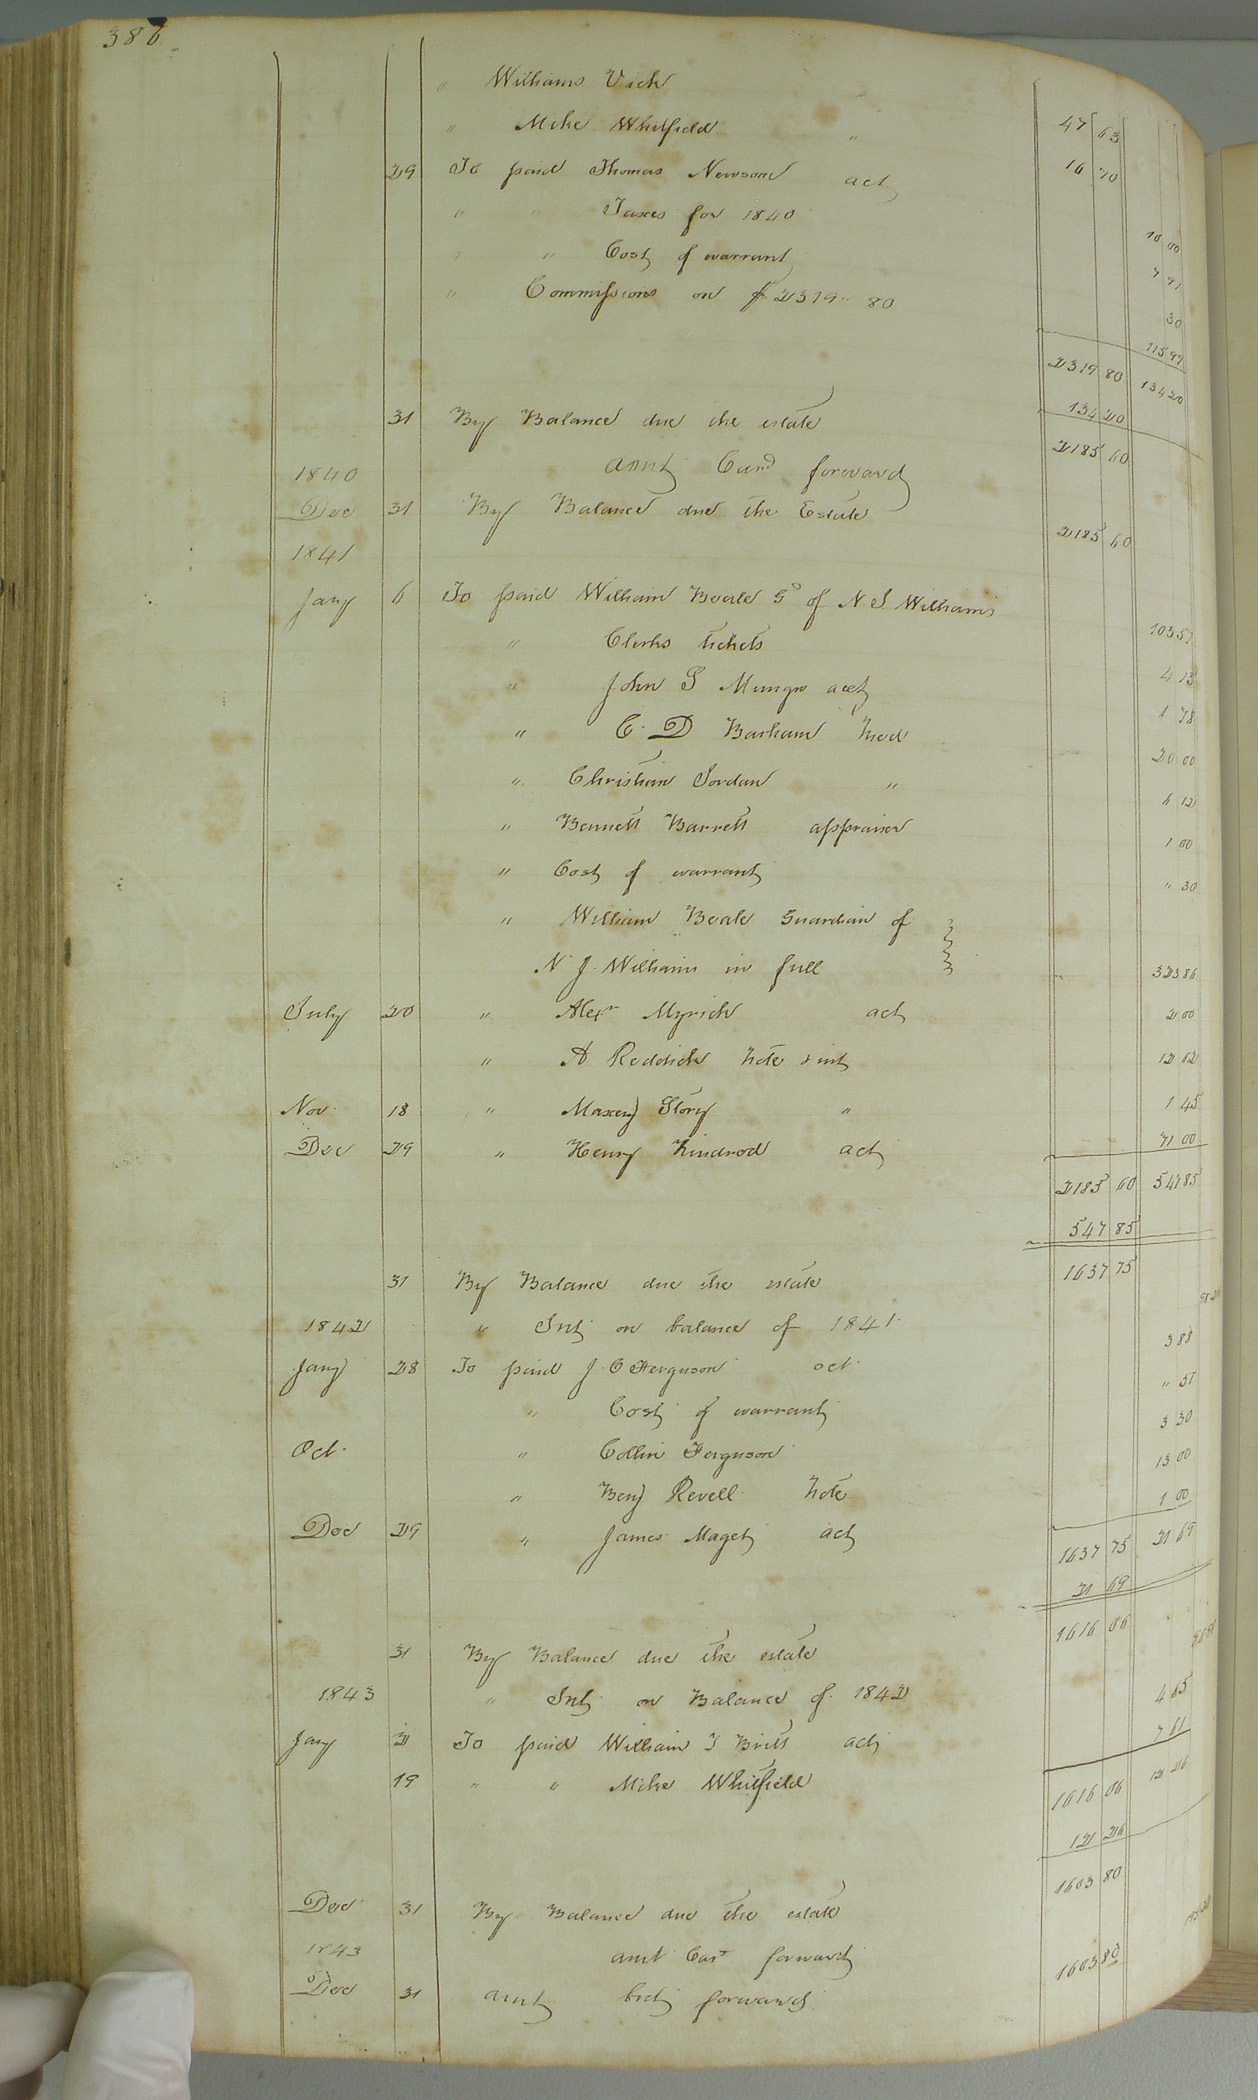 386
" Williams Vick 47 63
" Mike Whitfield " 16 70
29 To paid Thomas Newsom act 10 00
" " Taxes for 1840 7 91
" " Cost of warrant 30
" Commissions on $2319.. 80 115 99
2319 80 134 20
134 20
31 By Balance due the estate 2185 60
amt Card forward
1840
Dec 31 By Balance due the Estate 2185 60
1841
Jany 6 To paid William Beale Gd of N. J. Williams 103 57
" Clerks tickets 4 13
" John S Mungo acct 1 78
" C. D Barham Med 20 00
" Christian Jordan " 6 12
" Bennett Barrett appraiser 1 00
" Cost of warrant " 30
" William Beale Guardian of
N. J. Williams in full 323 86
July 20 " Alexr Myrick act 2 00
" A Reddick note & int 12 62
Nov. 18 " Maxey Story " 1 45
Dec 29 " Henry Kindred act 71 00
2185 60 547 85
547 85
31 By Balance due the estate 1637 75
1842 " Int on balance of 1841.
Jany 28 To paid J. C Ferguson act. 3 88
" Cost of warrant " 51
Oct. " Collin Ferguson 3 30
" Benj Revell Note 13 00
Dec 29 " James Maget act 1 00
1637 75 21 69
21 69
31 By Balance due the estate 1616 06
1843 " Int on Balance of. 1842
Jany 2 To paid William J Britt act 4 65
19 " " Mike Whitfield 7 61
1616 06 12 26
12 26
Dec 31 By Balance due the estate 1603 80
1843 amt Card forward
Dec 31 amt brt forward 1603 80